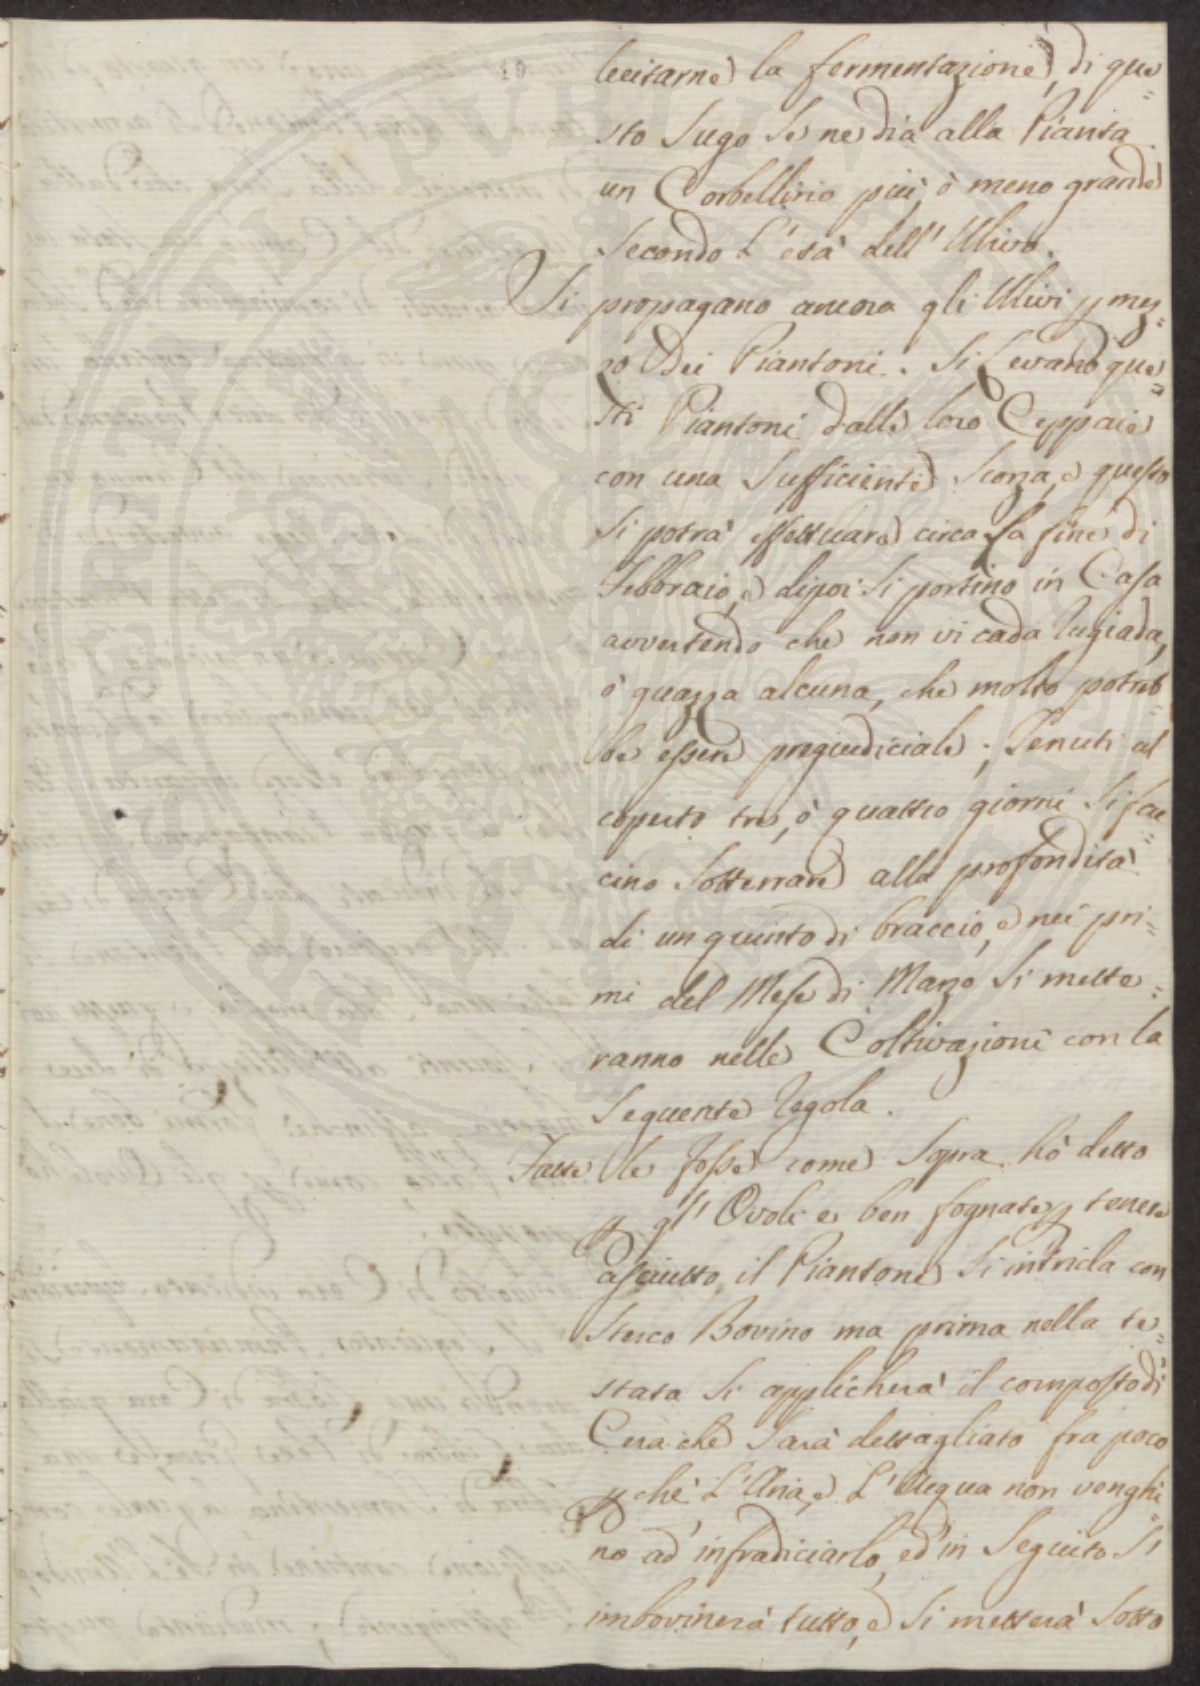 19
lecitarne la fermentazione, di que=
sto Sugo Se ne dia alla Pianta
un Corbellino più, ò meno grande
Secondo L'età dell'Ulivo.
Si propagano ancora gli Ulivi p mez=
zo Dei Piantoni. Si Levano que=
sti Piantoni dalle loro Ceppaie
con una Sufficiente Scorza, e questo
Si potrà effettuare circa la fine di
Febbraio, e dipoi Si portino in Casa
avvertendo che non vi cada rugiada,
ò guazza alcuna, che molto potreb=
be essere pregiudiciale; Tenuti al
coperto tre, ò quattro giorni Si fac=
cino Sotterrare alla profondità
di un quinto di braccio, e nei pri=
mi del Mese di Marzo Si mette=
ranno nelle Coltivazioni con la
Seguente regola.
Fatte le fosse come Sopra hò detto
p gl'Ovoli e ben fognate p tenere
asciutto il Piantone Si intrida con
Sterco Bovino ma prima nella te=
stata Si applicherà il composto di
Cera che Sarà dettagliato fra poco
p chè L'Aria, e L'Acqua non venghi=
no ad infradiciarlo, ed in Seguito Si
imbovinerà tutto, e Si metterà Sotto